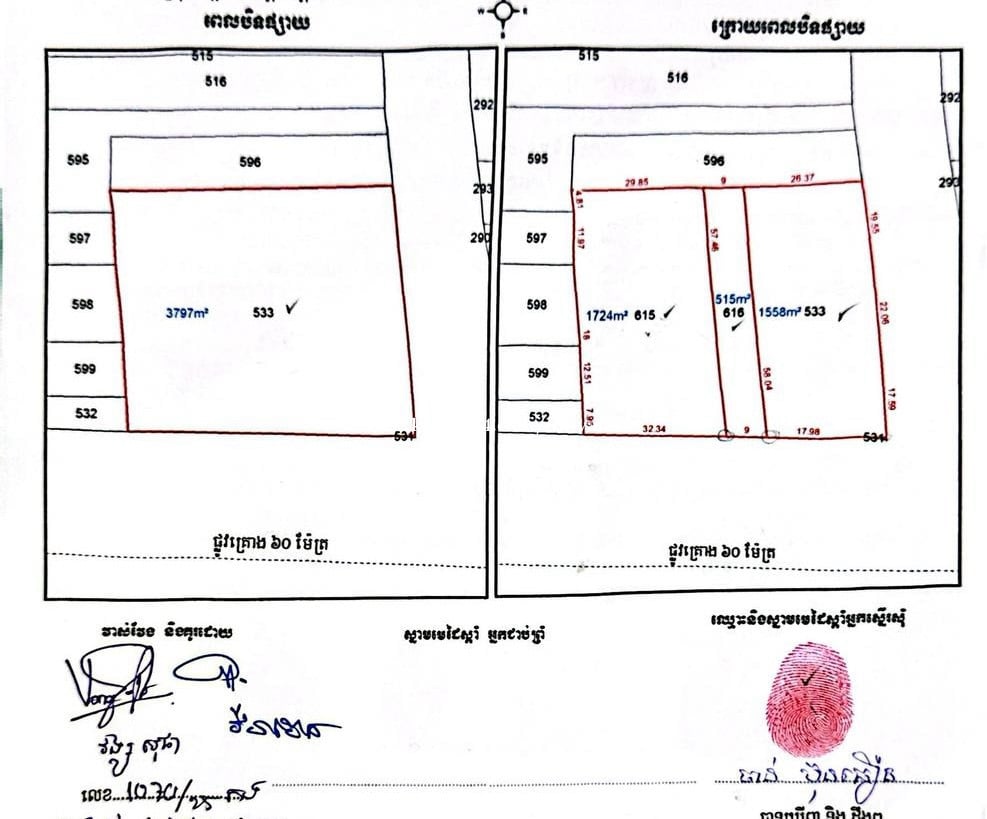 ពេលបិទផ្សាយ
ក្រោយពេលបិទផ្សាយ
515
516
292
595
596
293
597
290
598
3797m² 533
599
532
531
ផ្លូវគ្រោង ៦០ ម៉ែត្រ
515
516
292
595
596
293
29.85 9 26.37
4.81
11.97
57.46
19.55
597
598
1724m² 615
515m²
616
1558m² 533
22.06
18
12.51
58.04
17.59
599
7.95
532
32.34 9 17.98
531
ផ្លូវគ្រោង ៦០ ម៉ែត្រ
វាស់វែង និងគូរដោយ
ស្នាមមេដៃស្តាំ អ្នកជាប់ព្រំ
ឈ្មោះនិងស្នាមមេដៃស្តាំអ្នកស្នើរសុំ
លេខ